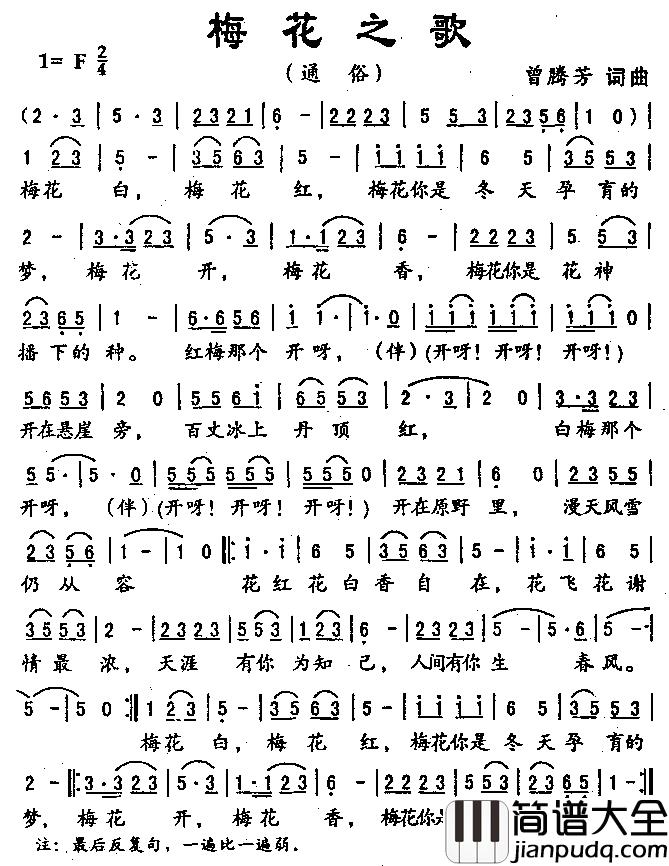 梅花之歌
1= F 2/4 （通俗） 曾腾芳 词曲
(2·3 | 5·3 | 2321 | 6 - | 2223 | 5 3 | 2356 | 1 0 )|
1 23 | 5 - | 3563 | 5 - | i i i i | 6 5 | 3535 | 1 53 |
梅花 白， 梅花 红， 梅花你是 冬 天 孕 育的
2 - | 3·323 | 5·3 | 1·123 | 6 - | 2223 | 5 5 | 5 53 |
梦， 梅花 开， 梅花 香， 梅花你是 花 神
2365 | 1 - | 6·656 | i i· | i·0 | iii iii | iii 0 |
播下的 种。 红梅那个 开呀，（伴）(开呀！开呀！开呀！)
5653 | 2 0 | 556i | 6535 | 2·3 | 2 0 | 3·323 |
开在悬崖 旁， 百丈冰上 丹 顶 红， 白梅那个
55· | 5·0 | 555 555 | 555 0 | 2321 | 6 0 | 2353 |
开呀，（伴）(开呀！开呀！开呀！) 开在原野 里， 漫天风雪
23 56 | 1 - | 1 0 ‖: i·i | 6 5 | 3563 | 5·i | 6 5 |
仍从 容 花红花白香自 在，花飞花谢
3553 | 2 - | 2323 | 553 | 123 | 6 - | 5553 | 5 - | 5·6 | 5 -
情最 浓， 天涯 有你 为知 己，人间有你生 春风。
5 - | 5 0 :‖ 1 23 | 5 - | 3563 | 5 - | i i i i | 6 5 | 3535 | 3 553 |
梅花 白， 梅花 红， 梅花你是 冬 天 孕 育的
2 - ‖: 3·323 | 5·3 | 1·123 | 6 - | 2223 | 5 5 | 5 53 | 2365 | 1 - :‖
梦，梅花 开， 梅花 香， 梅花你是
注：最后反复句，一遍比一遍弱。
简谱大全
jianpudq.com